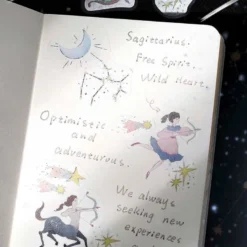 Sagittarius.
Free Spirit.
Wild Heart.
Optimistic
and
adventurus.
We always
seeking new
experiences